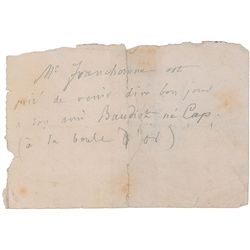 Mr Franchomme est
prié de venir dire bonjour
a son ami Baudiot né Cap.
(à la boule d'or)